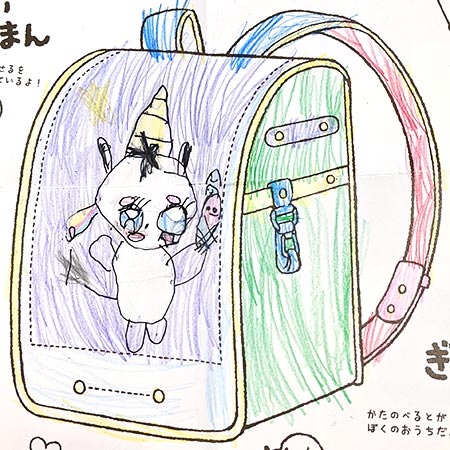 まん
せるを
ているよ！
ぎ
かたのべるとが
ぼくのおうちだ